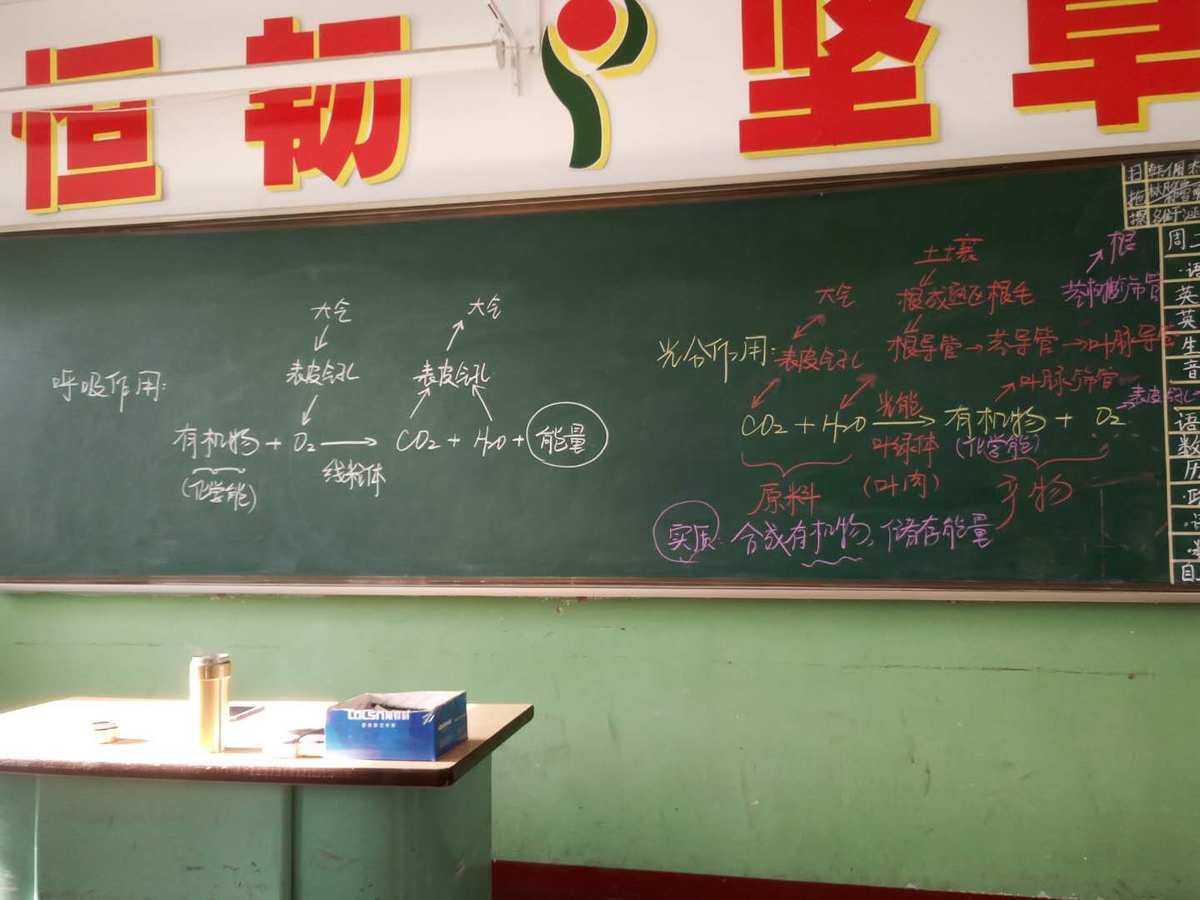 恒韧 坚卓
呼吸作用:
大气
表皮气孔
大气
表皮气孔
有机物 + O₂ → CO₂ + H₂O + 能量
(化学能)
线粒体
光合作用:
大气
表皮气孔
土壤
根成熟区根毛
根导管→茎导管→叶脉导管
根
叶脉筛管
表皮气孔
CO₂ + H₂O → 有机物 + O₂
光能
叶绿体
(叶肉)
(化学能)
原料
产物
实质: 合成有机物, 储存能量
周二
英
英
生
音
语
数
历